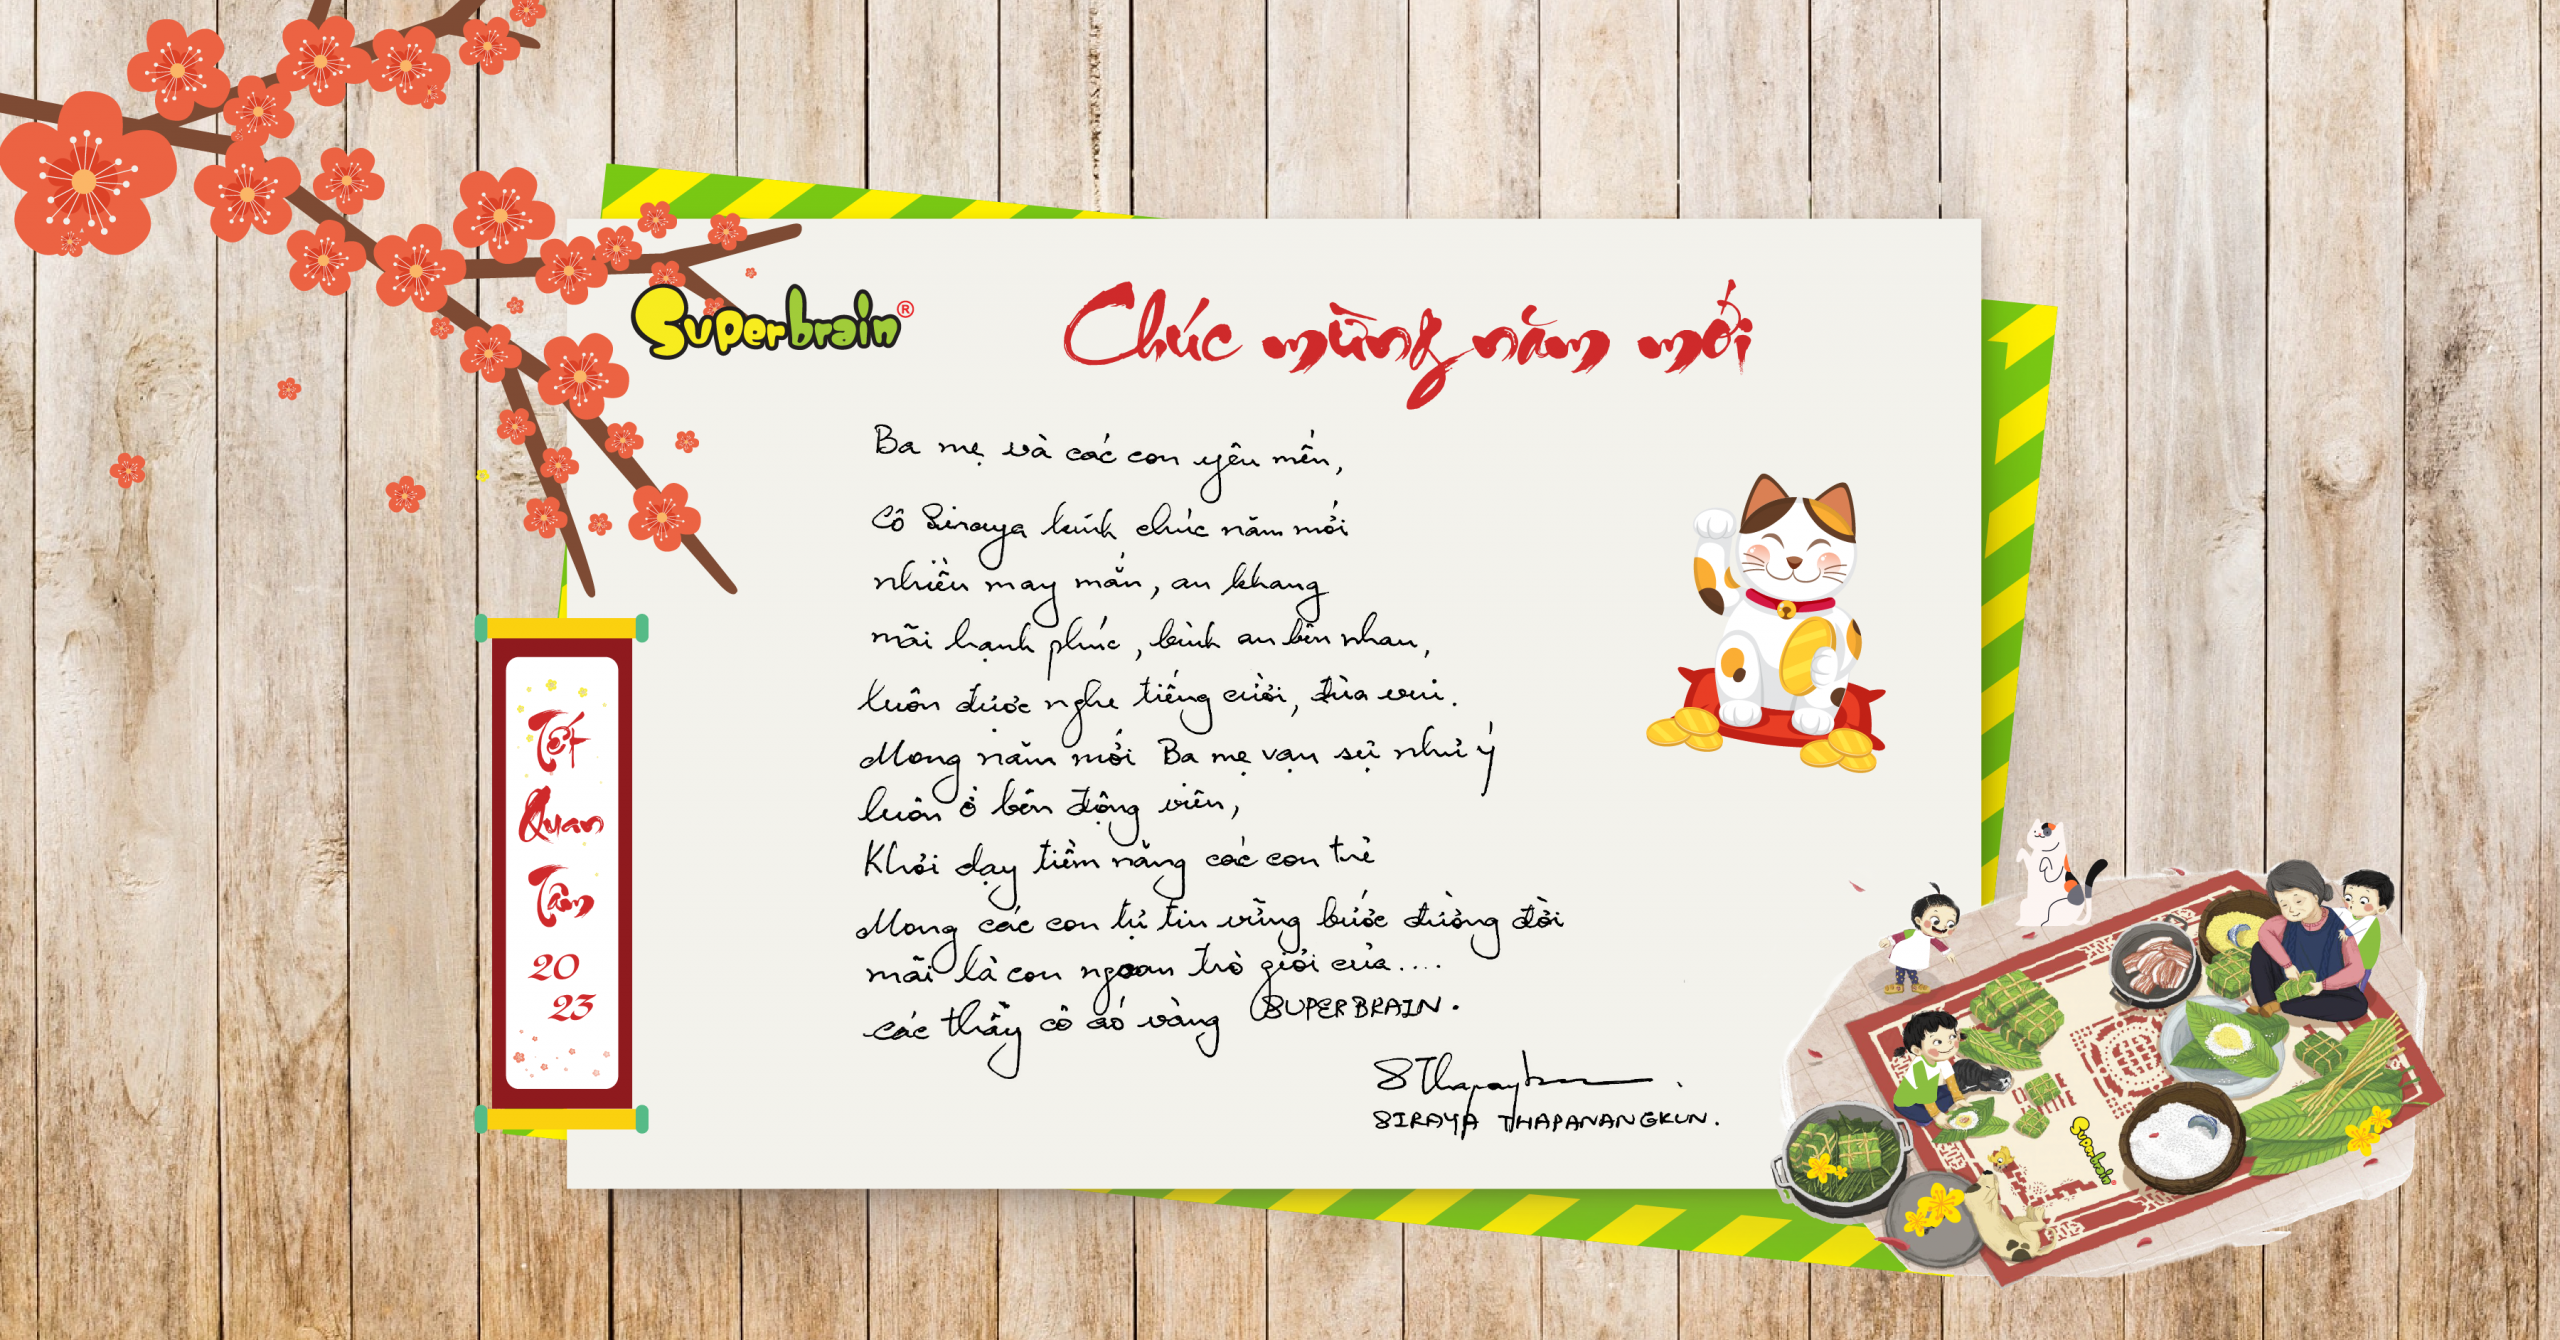 Superbrain®
Chúc mừng năm mới
Ba mẹ và các con yêu mến,
Cô Siraya kính chúc năm mới
nhiều may mắn, an khang
mãi hạnh phúc, bình an bên nhau,
luôn được nghe tiếng cười, đùa vui.
Mong năm mới Ba mẹ vạn sự như ý
luôn ở bên động viên,
Khơi dạy tiềm năng các con trẻ
Mong các con tự tin vững bước đường đời
mãi là con ngoan trò giỏi của....
các thầy cô áo vàng SUPERBRAIN.
SIRAYA THAPANANGKUN.
Tết
Quan
Tâm
20
23
Superbrain